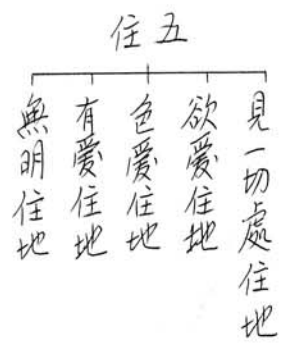 五住
見一切處住地
欲愛住地
色愛住地
有愛住地
無明住地